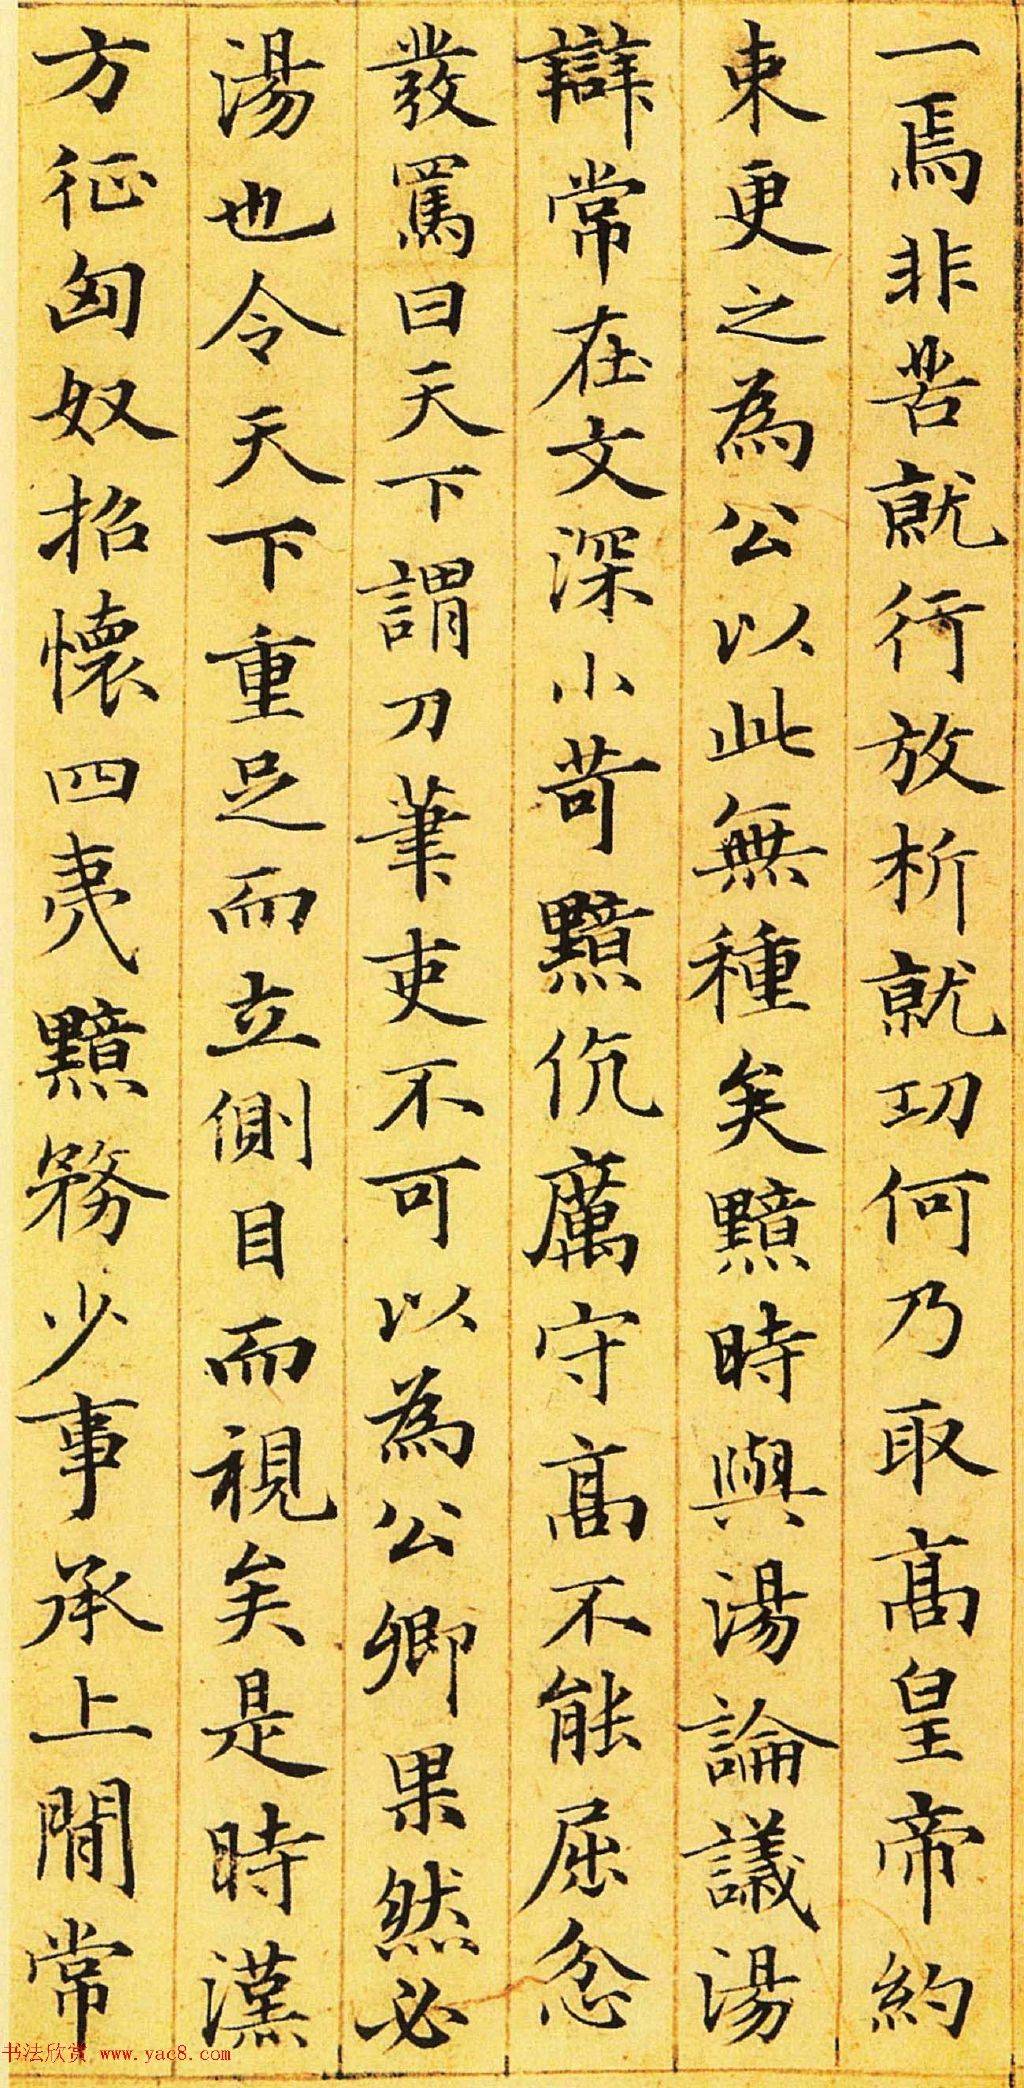 一焉非苦就行放析就功何乃取高皇帝約
束更之為公以此無種矣黯時與湯論議湯
辯常在文深小苛黯伉厲守高不能屈忿
發罵曰天下謂刀筆吏不可以為公卿果然必
湯也令天下重足而立側目而視矣是時漢
方征匈奴招懷四夷黯務少事承上閒常
书法欣赏 www.yac8.com